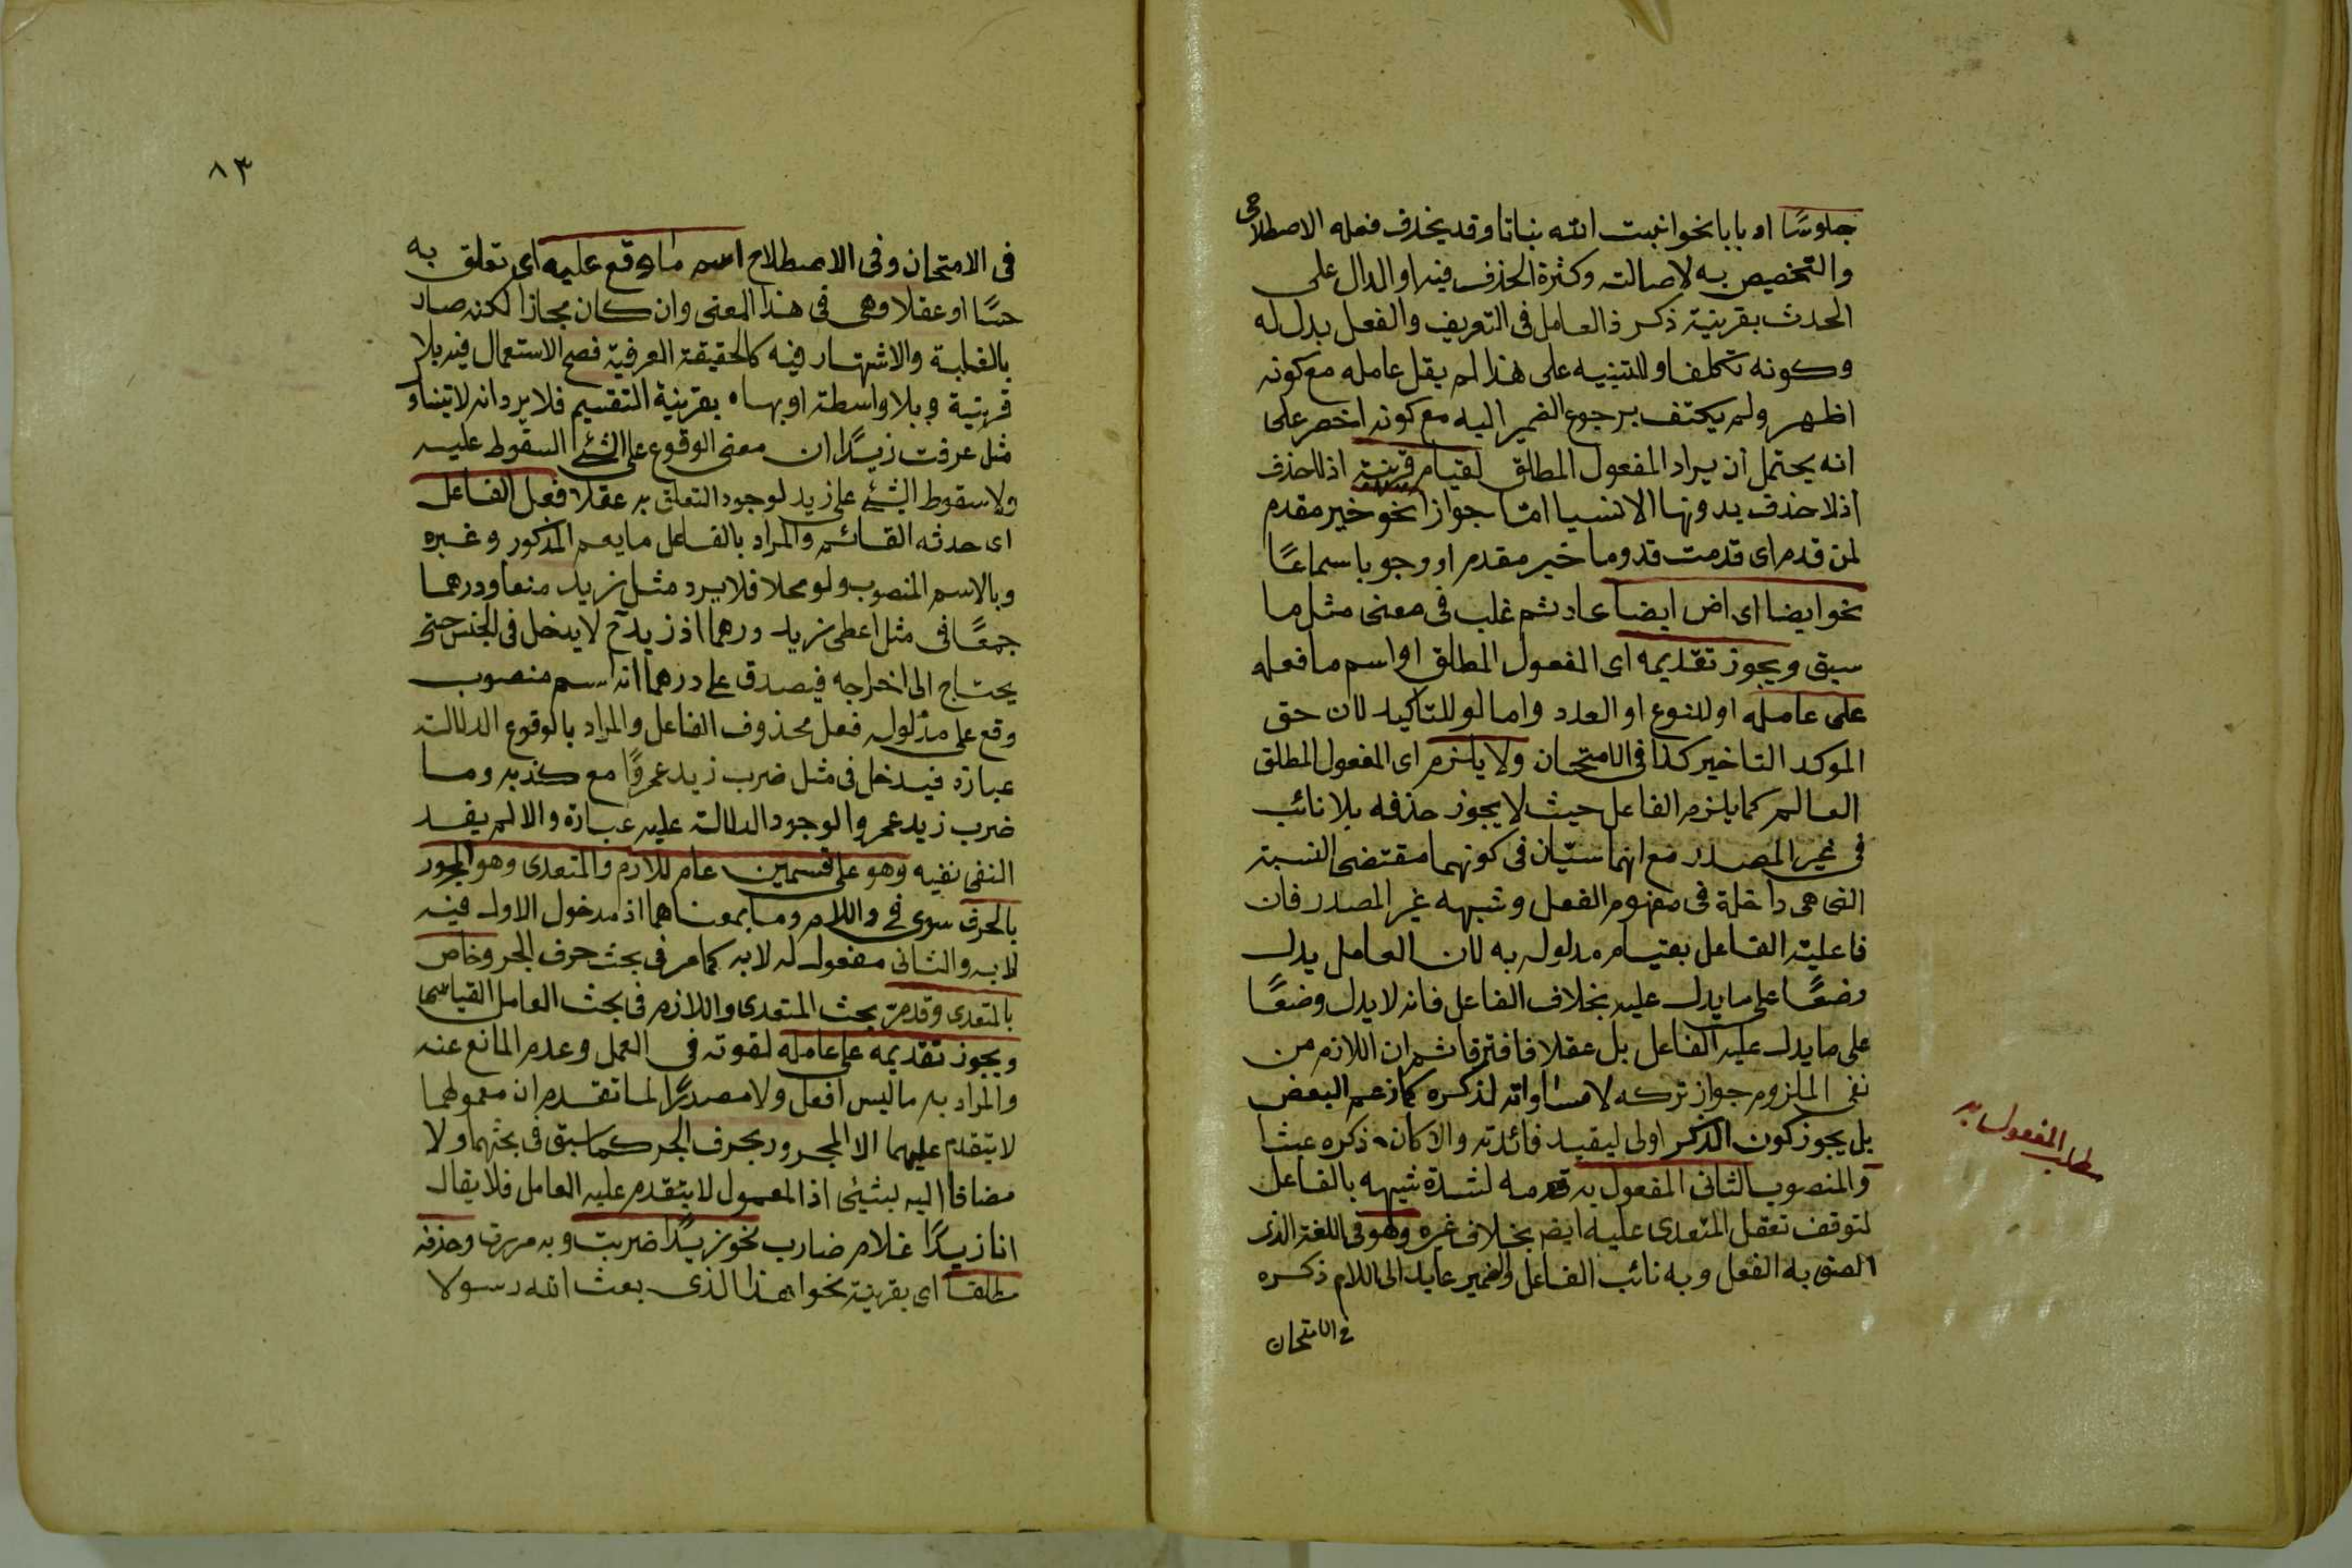 جلوسًا او بابا نحو انبت الله نباتا وقد يحذف فعله الاصطلاحى
والتخصيص به لاصالته وكثرة الحذف فيه او الدال على
الحدث بقرينة ذكر ذ العامل فى التعريف والفعل بدل له
وكونه تكلفا وللتنبيه على هذا لم يقل عامله مع كونه
اظهر ولم يكتف برجوع الضمير اليه مع كونه اخصر على
انه يحتمل ان يراد المفعول المطلق لقيام قرينة اذ لا حذف
اذ لا حذف بدونها الا نسيا امّا جوازا نحو خير مقدم
لمن قدم اى قدمت قدوما خير مقدم او وجوبا سماعًا
نحو ايضا اى اض ايضا عاد ثم غلب فى معنى مثل ما
سبق ويجوز تقديمه اى المفعول المطلق او اسم ما فعله
على عامله او للنوع او العدد واما لو للتاكيد لان حق
الموكد التاخير كذا فى الامتحان ولا يلزم اى المفعول المطلق
العالم كما يلزم الفاعل حيث لا يجوز حذفه بلا نائب
فى غير المصدر مع انهما سيّان فى كونهما مقتضى النسبة
التى هى داخلة فى مفهوم الفعل وشبهه غير المصدر فان
فاعلية الفاعل بقيام مدلوله به لان العامل يدل
وضعًا على ما يدل عليه بخلاف الفاعل فانه لا يدل وضعًا
على ما يدل عليه الفاعل بل عقلا فافترقا ثم ان اللازم من
نفى الملزوم جواز تركه لا مساواته لذكره كما زعم البعض
بل يجوز كون الذكر اولى ليفيد فائدته والا كان ذكره عبثا
والمنصوب الثانى المفعول به قدمه لشدة شبهه بالفاعل
لتوقف تعقل المتعدى عليه ايض بخلاف غيره وهو فى اللغة الذى
الصق به الفعل وبه نائب الفاعل والضمير عايد الى اللام ذكره
فى الامتحان
مطلب المفعول به
٨٣
فى الامتحان وفى الاصطلاح اسم ما وقع عليه اى تعلق به
حسًا او عقلا وهى فى هذا المعنى وان كان مجازا لكنه صار
بالغلبة والاشتهار فيه كالحقيقة العرفية فصح الاستعمال فيه بلا
قرينة وبلا واسطة او بها بقرينة التقسيم فلا يرد انه لا يتناو
مثل عرفت زيدًا ان معنى الوقوع على الشئ السقوط عليه
ولا سقوط الشئ على زيد لوجود التعلق به عقلا فعل الفاعل
اى حدثه القائم والمراد بالفاعل ما يعم المذكور وغيره
وبالاسم المنصوب ولو محلا فلا يرد مثل زيد منعا ودرهما
جمعًا فى مثل اعطى زيد درهما اذ زيد ح لا يدخل فى الجنس حتى
يحتاج الى اخراجه فيصدق على درهما انه اسم منصوب
وقع على مدلوله فعل محذوف الفاعل والمراد بالوقوع الدلالة
عبارة فيدخل فى مثل ضرب زيد عمروًا مع كذبه وما
ضرب زيد عمروا لوجود الدلالة عليه عبارة والا لم يفد
النفى نفيه وهو على قسمين عام للازم والمتعدى وهو المجرور
بالحرف سوى فى واللام وما بمعناهما اذ مدخول الاول فيه
لا به والثانى مفعول له لا به كما مر فى بحث حرف الجر وخاص
بالمتعدى وقد مرّ بحث المتعدى واللازم فى بحث العامل القياسى
ويجوز تقديمه على عامله لقوته فى العمل وعدم المانع عنه
والمراد به ما ليس افعل ولا مصدرًا لما تقدم ان معمولهما
لا يتقدم عليهما الا المجرور بحرف الجر كما سبق فى بحثهما ولا
مضافا اليه لشئ اذ المعمول لا يتقدم عليه العامل فلا يقال
انا زيدًا غلام ضارب نحو زيدًا ضربت وبه مررت وحذفه
مطلقا اى بقرينة نحو اهذا الذى بعث الله رسولا